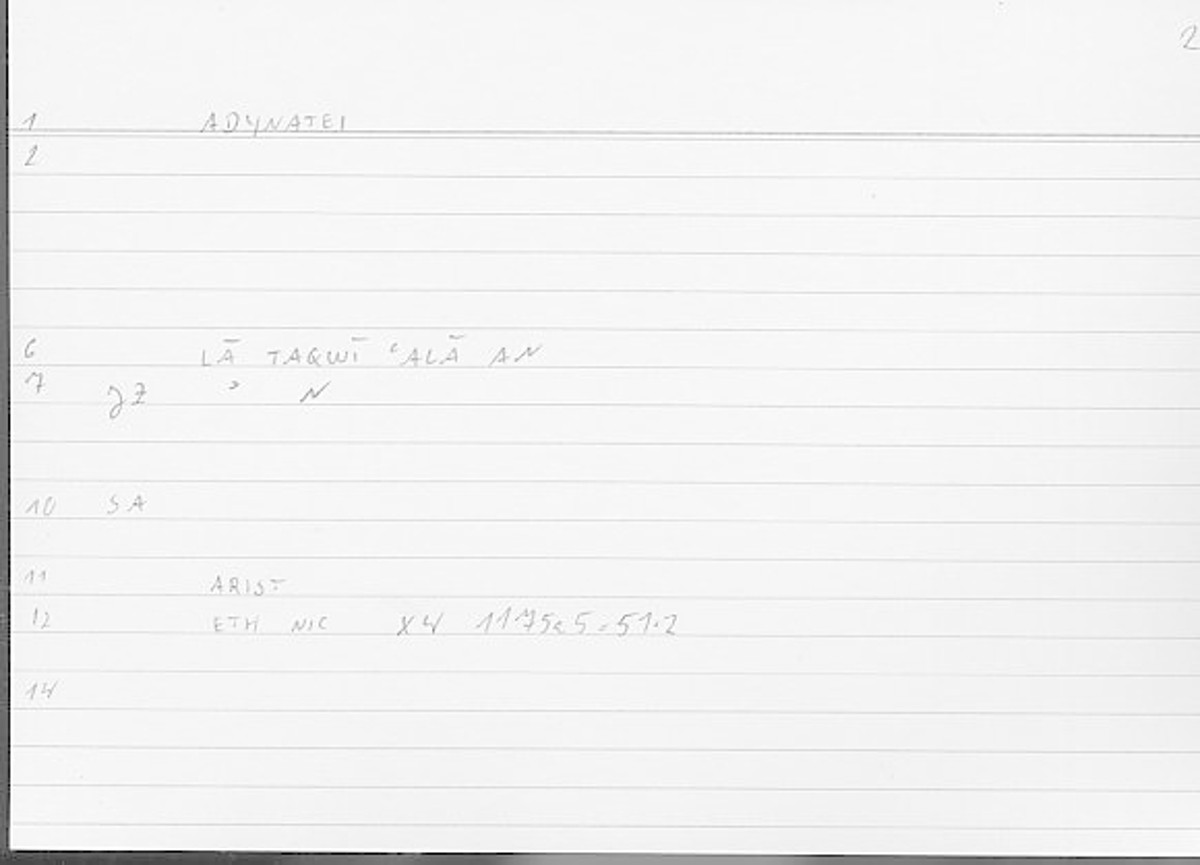 2
1 ADYNATEI
2
6 LĀ TAQWĪ ʿALĀ AN
7 JZ ʾ N
10 SA
11 ARIST
12 ETH NIC X4 1175a5=51.2
14